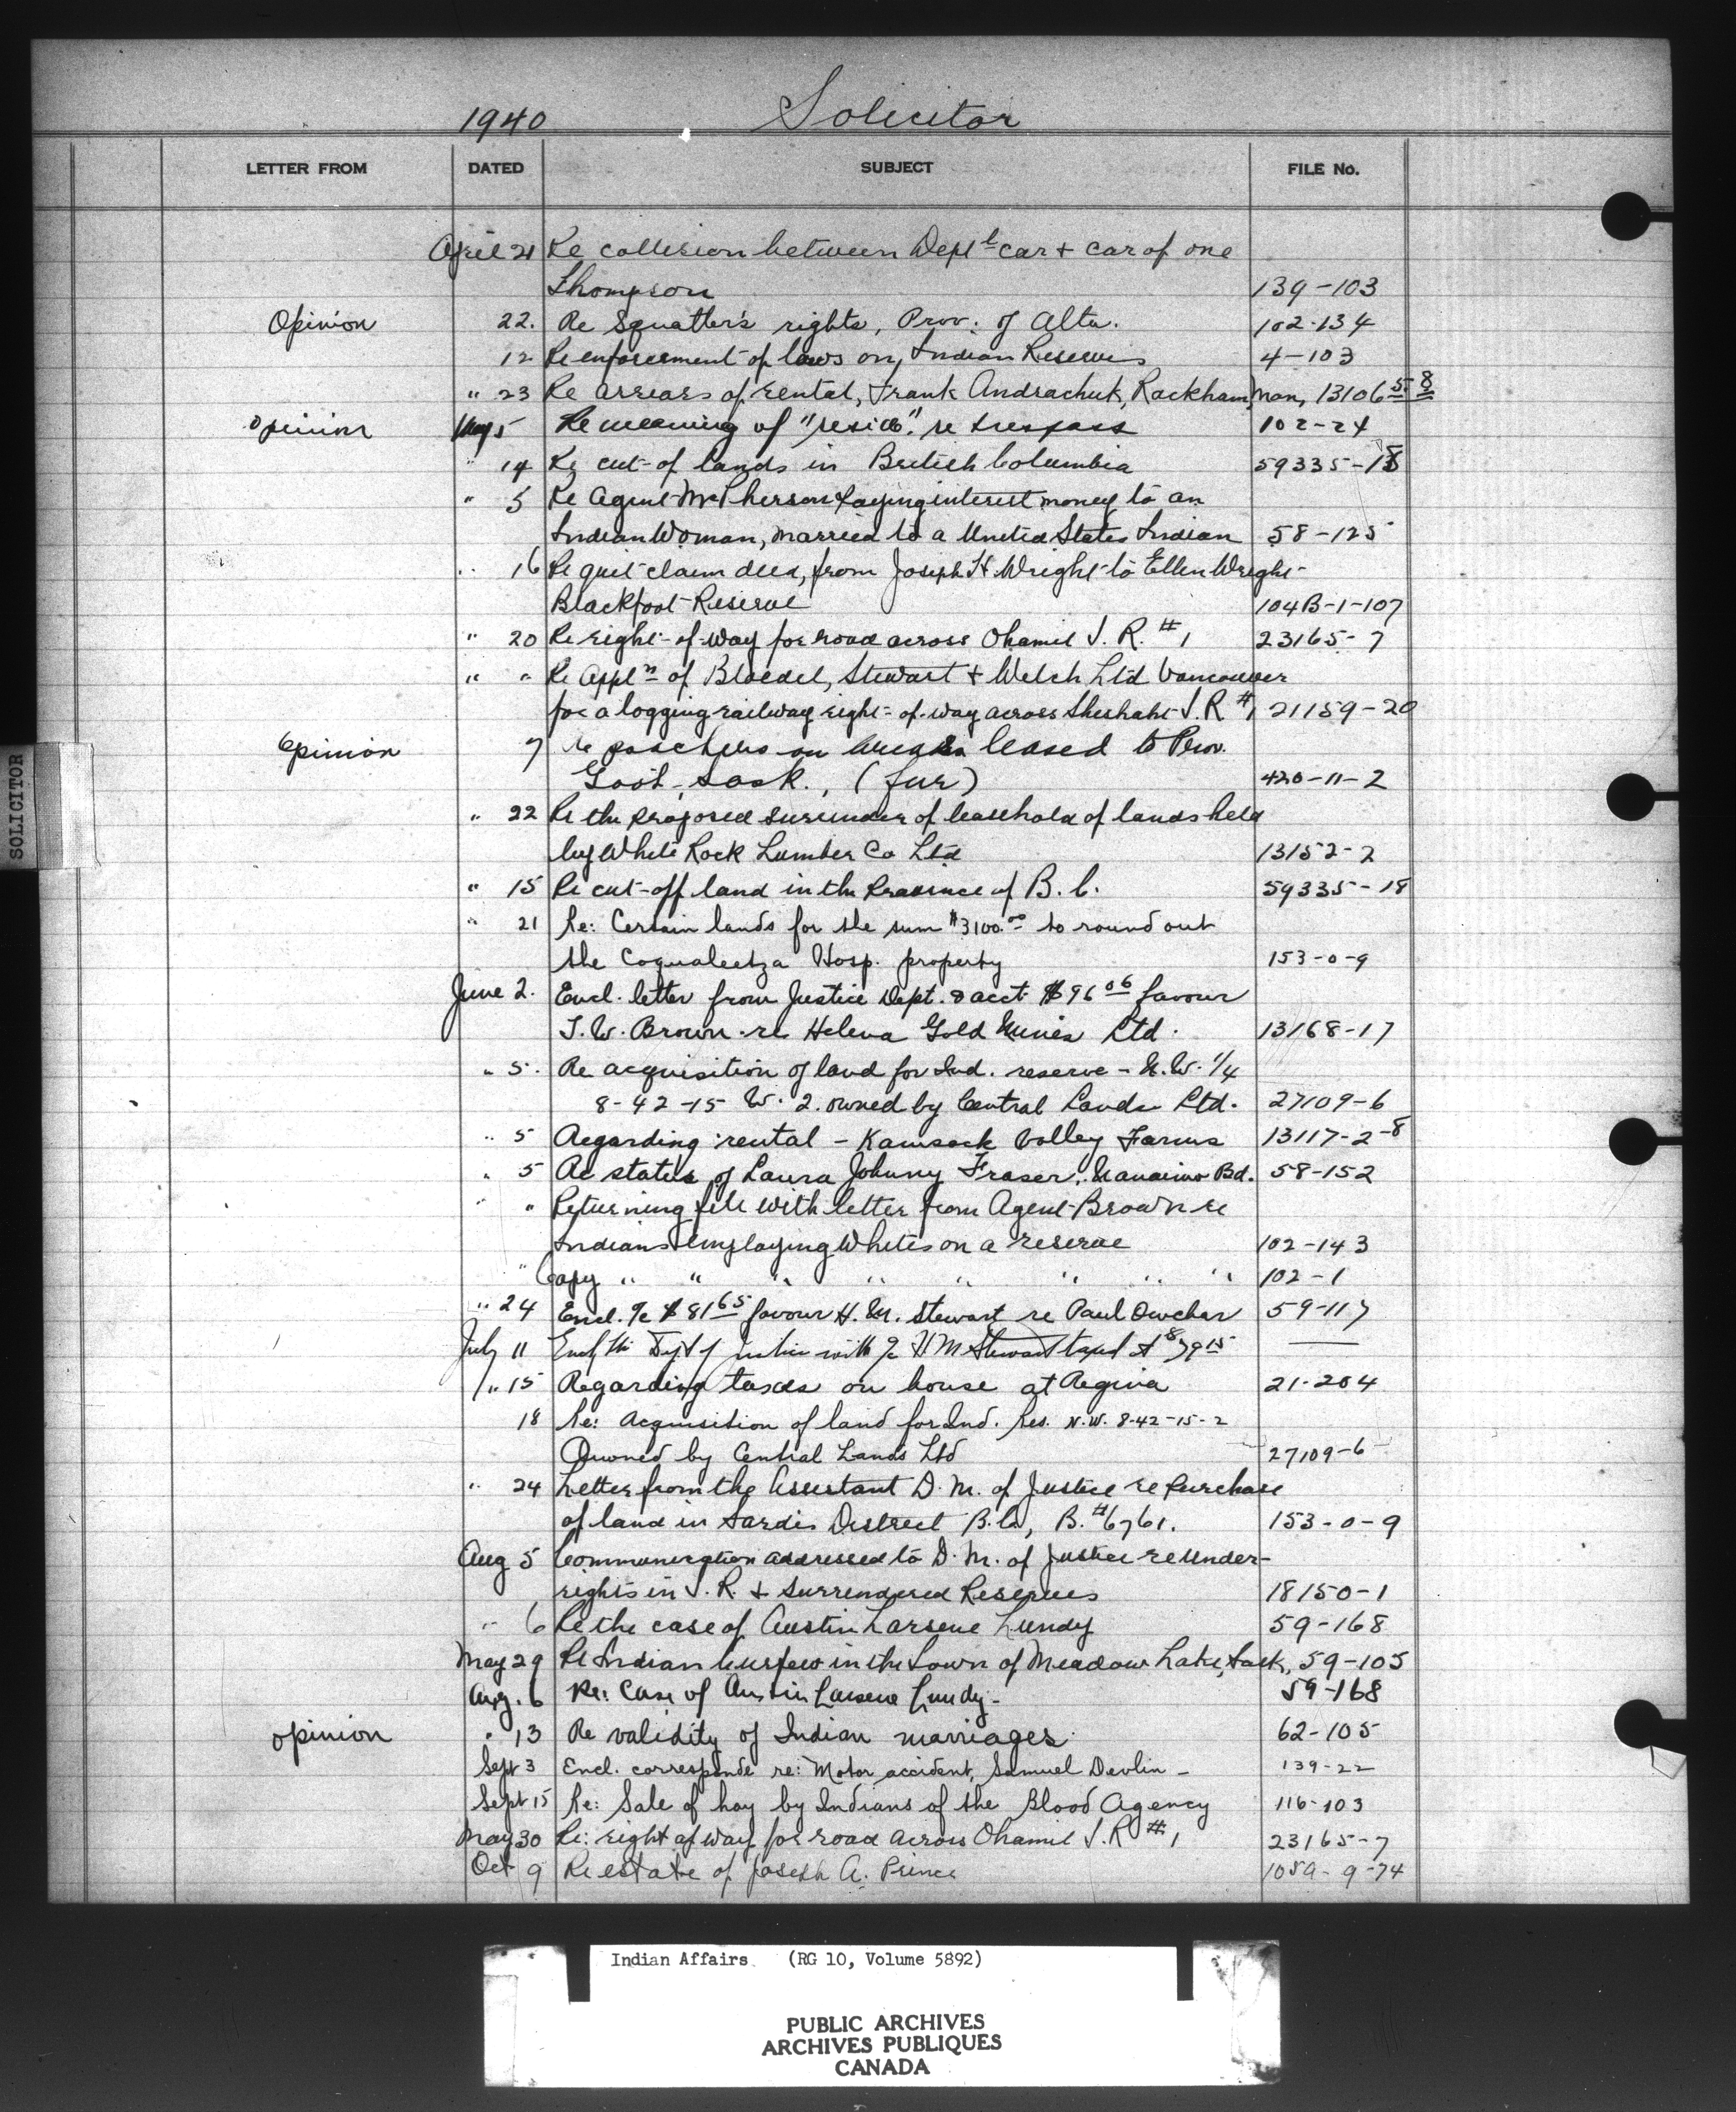 1940 Solicitor
LETTER FROM DATED SUBJECT FILE No.
April 21 Re collision between Deptl car + car of one
Thompson 139-103
Opinion 22. Re Squatter's rights, Prov. of Alta. 102-134
12 Re enforcement of laws on Indian Reserves 4-103
" 23 Re arrears of rental, Frank Andrachuk, Rackham, Man, 13106-5-8
Opinion May 5 Re meaning of "reside" re trespass 102-24
" 14 Re cut-of lands in British Columbia 59335-18
" 5 Re Agent McPherson paying interest money to an
Indian Woman, married to a United States Indian 58-125
" 16 Re quit-claim deed, from Joseph H. Wright to Ellen Wright-
Blackfoot Reserve 104B-1-107
" 20 Re right-of-way for road across Ohamil I.R. #1 23165-7
" " Re Appln of Bloedel, Stewart + Welch Ltd Vancouver
for a logging railway right-of-way across Sheshaht I.R #1 21159-20
Opinion 7 re poachers on areas leased to Prov.
Govt., Sask., (fur) 420-11-2
" 22 Re the proposed surrender of leasehold of lands held
by White Rock Lumber Co Ltd 13152-2
" 15 Re cut-off land in the Province of B.C. 59335-18
" 21 Re: Certain lands for the sum $3100.00 to round out
the Coqualeetza Hosp. property 153-0-9
June 2. Encl. letter from Justice Dept. & acct. $96 06 favour
T.W. Brown re Helena Gold Mines Ltd. 13168-17
" 5. Re acquisition of land for Ind. reserve - N.W. 1/4
8-42-15 W. 2. owned by Central Lands Ltd. 27109-6
" 5 Regarding rental - Kamsack Valley Farms 13117-2-8
" 5 Re status of Laura Johnny Fraser, Nanaimo Bd. 58-152
" " Returning file with letter from Agent Brown re
Indians employing Whites on a reserve 102-143
" Copy " " " " " " " " 102-1
" 24 Encl. a/c $81 65 favour H.M. Stewart re Paul Owchar 59-117
July 11 Dept of Justice with a/c H M Stewart
" 15 Regarding taxes on house at Regina 21-204
18 Re: Acquisition of land for Ind. Res. N.W. 8-42-15-2
Owned by Central Lands Ltd 27109-6
" 24 Letter from the Assistant D.M. of Justice re Purchase
of land in Sardis District B.C., B. #6761. 153-0-9
Aug 5 Communication addressed to D.M. of Justice re Under-
rights in I.R. + Surrendered Reserves 18150-1
" 6 Re the case of Austin Larsene Lundy 59-168
May 29 Re Indian Curfew in the Town of Meadow Lake, Sask, 59-105
Aug. 6 Re: Case of Austin Larsene Lundy - 59-168
opinion " 13 Re validity of Indian marriages. 62-105
Sept 3 Encl. corresponde re: Motor accident, Samuel Devlin - 139-22
Sept 15 Re: Sale of hay by Indians of the Blood Agency 116-103
May 30 Re: right of way for road across Ohamil I.R #1 23165-7
Oct 9 Re estate of Joseph A. Prince 1059-9-74
SOLICITOR
Indian Affairs (RG 10, Volume 5892)
PUBLIC ARCHIVES
ARCHIVES PUBLIQUES
CANADA